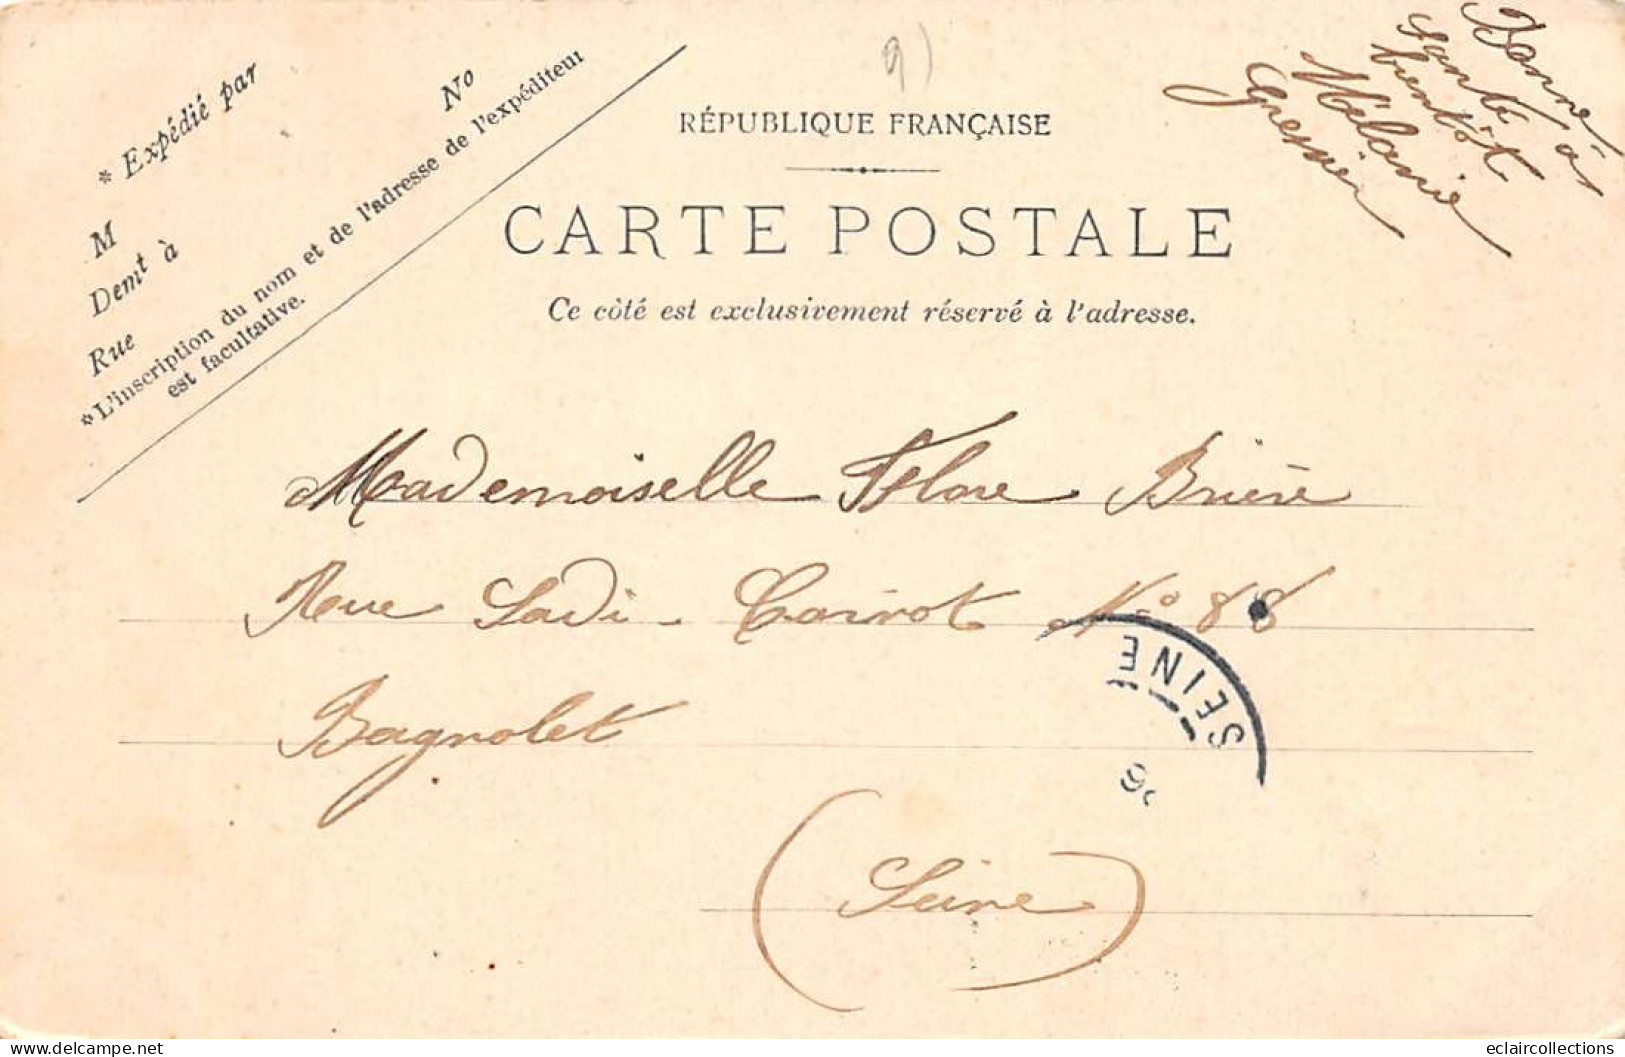 9)
* Expédié par
No
M
Demt à
Rue
* L'inscription du nom et de l'adresse de l'expéditeur
est facultative.
RÉPUBLIQUE FRANÇAISE
CARTE POSTALE
Ce côté est exclusivement réservé à l'adresse.
Bonne
santé à
bientôt
Mélanie
Mademoiselle Flore Brière
Rue Sadi-Carnot No 88
Bagnolet
(Seine)
SEINE
eclaircollections